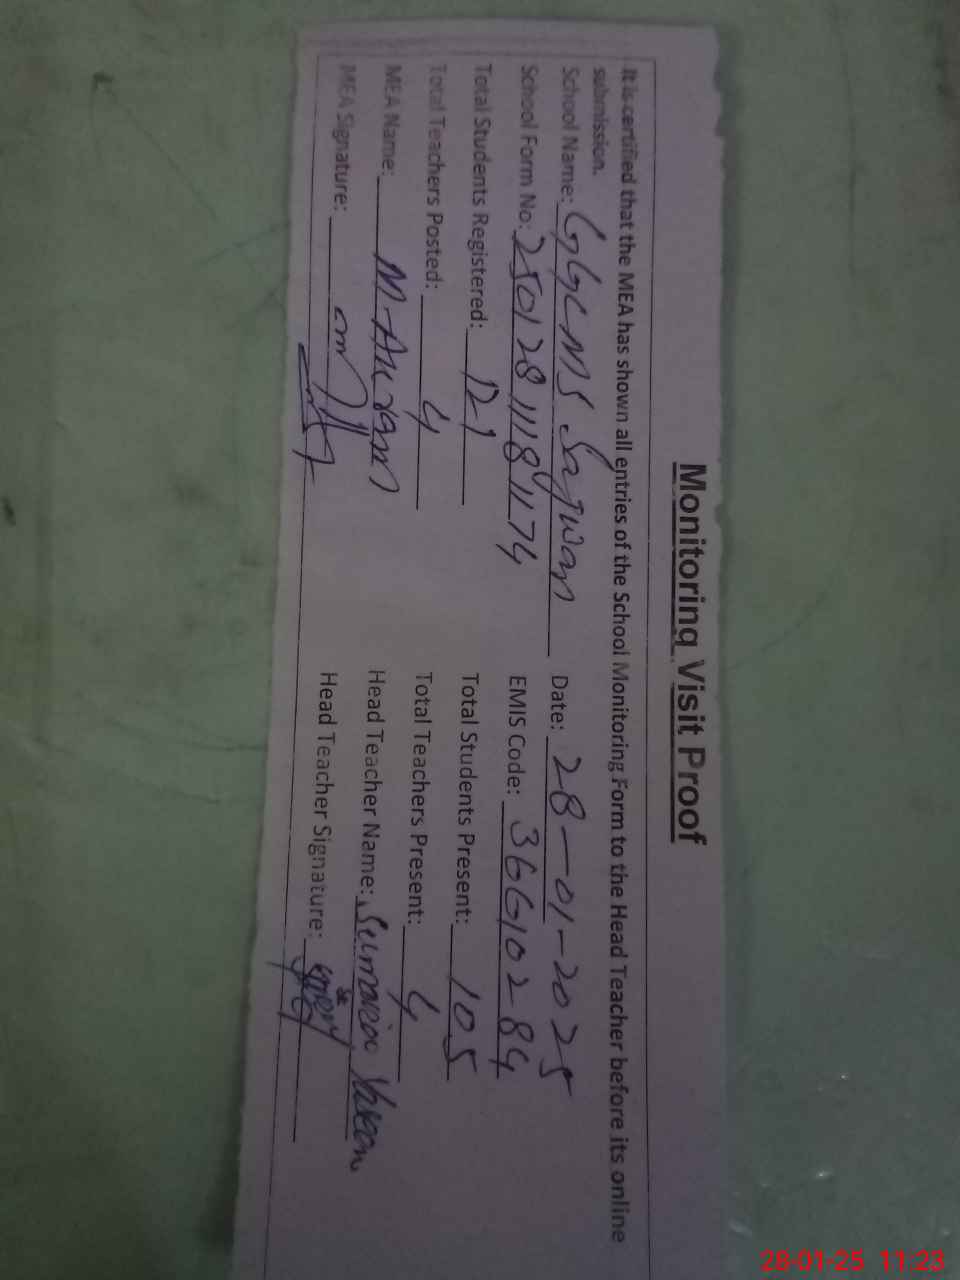 Monitoring Visit Proof
It is certified that the MEA has shown all entries of the School Monitoring Form to the Head Teacher before its online
submission.
School Name: GGCMS Sajwan Date: 28-01-2025
School Form No: 250128111811174 EMIS Code: 36610284
Total Students Registered: 121 Total Students Present: 105
Total Teachers Posted: 4 Total Teachers Present: 4
MEA Name: M. Akram Head Teacher Name: Sumaira
MEA Signature: Head Teacher Signature:
28-01-25 11:23